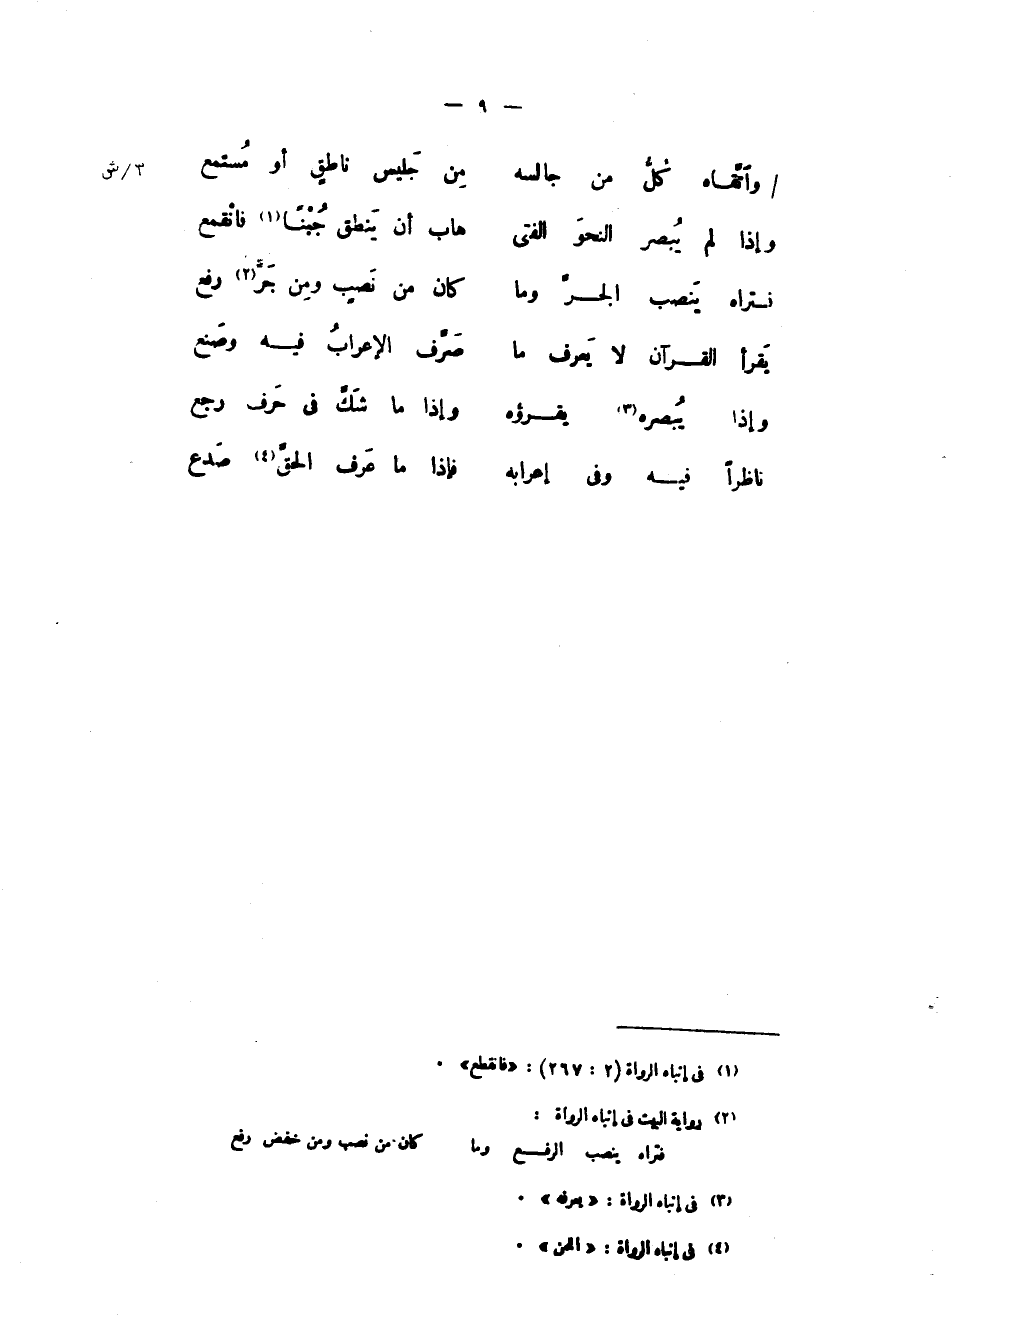 — ٩ —
/ وٱتَّقاه كلُّ من جالسه مِن جَليس ناطقٍ أو مُستمع ٣/ش
وإذا لم يُبصر النحوَ الفتى هاب أن يَنطق جُبْنًا(١) فانْقمع
فتراه يَنصب الجرَّ وما كان من نَصبٍ ومِن جَرٍّ(٢) رفع
يَقرأ القرآن لا يَعرف ما صَرَّف الإعرابُ فيه وصَنع
وإذا يُبصره(٣) يقرؤه وإذا ما شكَّ فى حَرف رجع
ناظراً فيه وفى إعرابه فإذا ما عَرف الحقَّ(٤) صَدع
(١) فى إنباه الرواة (٢ : ٢٦٧) : «فانقطع» .
(٢) رواية البيت فى إنباه الرواة :
فتراه ينصب الرفع وما كان من نصب ومن خفض رفع
(٣) فى إنباه الرواة : « يعرفه » .
(٤) فى إنباه الرواة : « اللحن » .